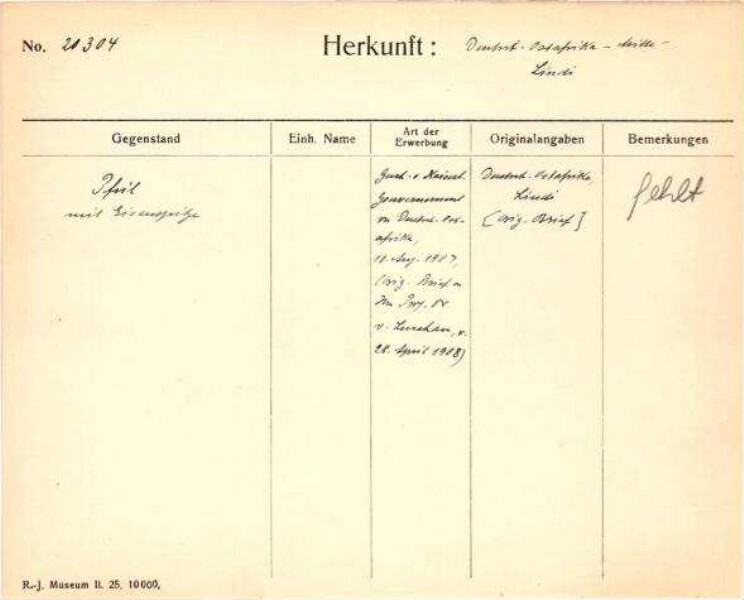 No. 20304
Herkunft: Deutsch-Ostafrika - Mitte -
Lindi
Gegenstand
Einh. Name
Art der
Erwerbung
Originalangaben
Bemerkungen
Pfeil
mit Eisenspitze
Gesch. v. Kaiserl.
Gouvernement
von Deutsch-Ost-
afrika,
Aug. 1907,
(orig. Brief
Prof. Dr
v. Luschan, v.
28. April 1908)
Deutsch-Ostafrika,
Lindi
[orig. Brief]
fehlt
R.-J. Museum II. 25. 10000.